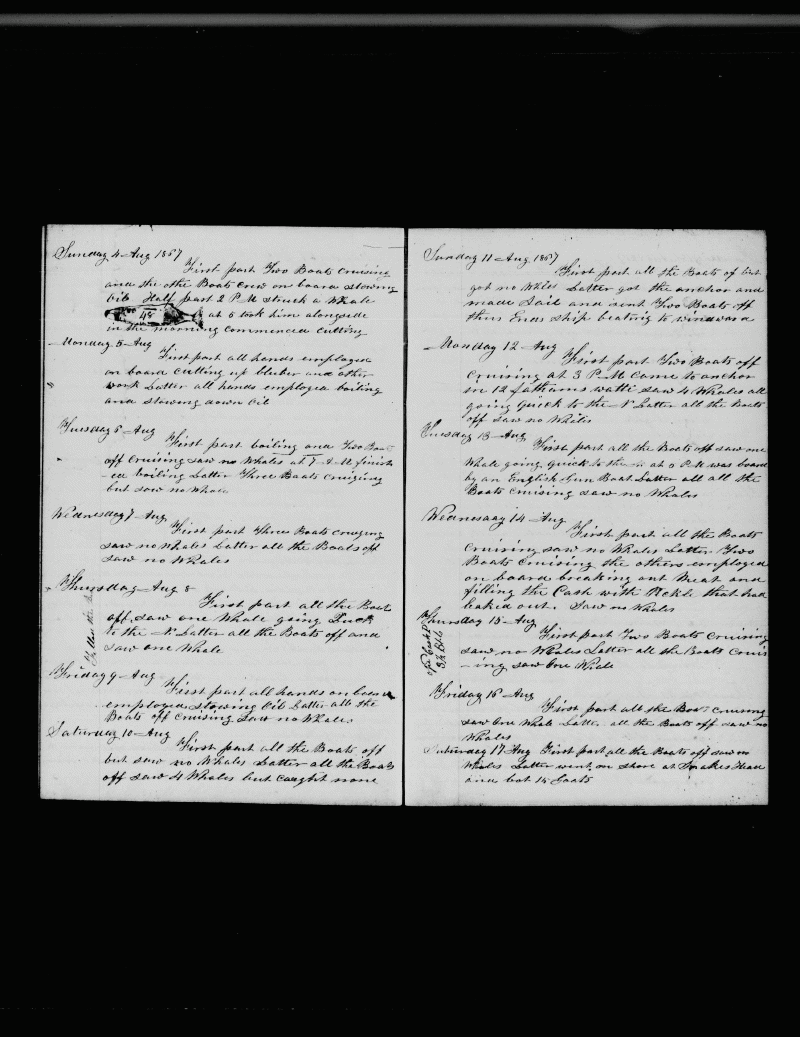 Sunday 4 Aug 1867
First part Two Boats cruising
and the othe Boats crew on board stowing
Oil Half part 2 P M struck a Whale
48 at 5 took him alongside
in the morning commenced cutting
Monday 5 Aug
First part all hands employed
on board cutting up bluber and other
work Latter all hands employed boiling
and stowing down Oil
Tuesday 6 Aug
First part boiling and Two Boats
off cruising saw no Whales at 7 A M finish
-ed boiling Latter Three Boats cruising
but saw no Whale
Wednesday 7 Aug
First part Three Boats cruising
saw no Whales Latter all the Boats off
saw no Whales
Thursday Aug 8
First part all the Boats
off saw one Whale going Quick
to the N Latter all the Boats off and
saw one Whale
Friday 9 Aug
First part all hands on board
employed stowing Oil Latter all the
Boats off cruising Saw no Whales
Saturday 10 Aug
First part all the Boats off
but saw no Whales Latter all the Boats
off saw 4 Whales but caught none
Sunday 11 Aug 1867
First part all the Boats of but
got no Whles Latter got the anchor and
made Sail and sent Two Boats off
thus Ends ship beating to windward
Monday 12 Aug
First part Two Boats off
Cruising at 3 P M Came to anchor
in 12 fathoms watter saw 4 Whales all
going Quick to the N Latter all the Boats
off Saw no Whales
Tuesday 13 Aug
First part all the Boats off saw one
Whale going Quick to the n at 0 P M was board
by an English Gun Boat Latter all all the
Boats cruising saw no Whales
Wednesday 14 Aug
First part all the Boats
cruising saw no Whales Latter Two
Boats Cruising the others employed
on board breaking out Meat and
filling the Cash with that had
leaked out. Saw no Whales
Thursday 15 Aug
First part Two Boats Cruising
saw no Whales Latter all the Boats Cruis
-ing saw One Whale
Friday 16 Aug
First part all the Boats cruising
saw One Whale Latter all the Boats off saw no
Whales
Saturday 17 Aug First part all the Boats off saw no
Whales Latter went on shore at Snakes Head
and Got 15 Goats